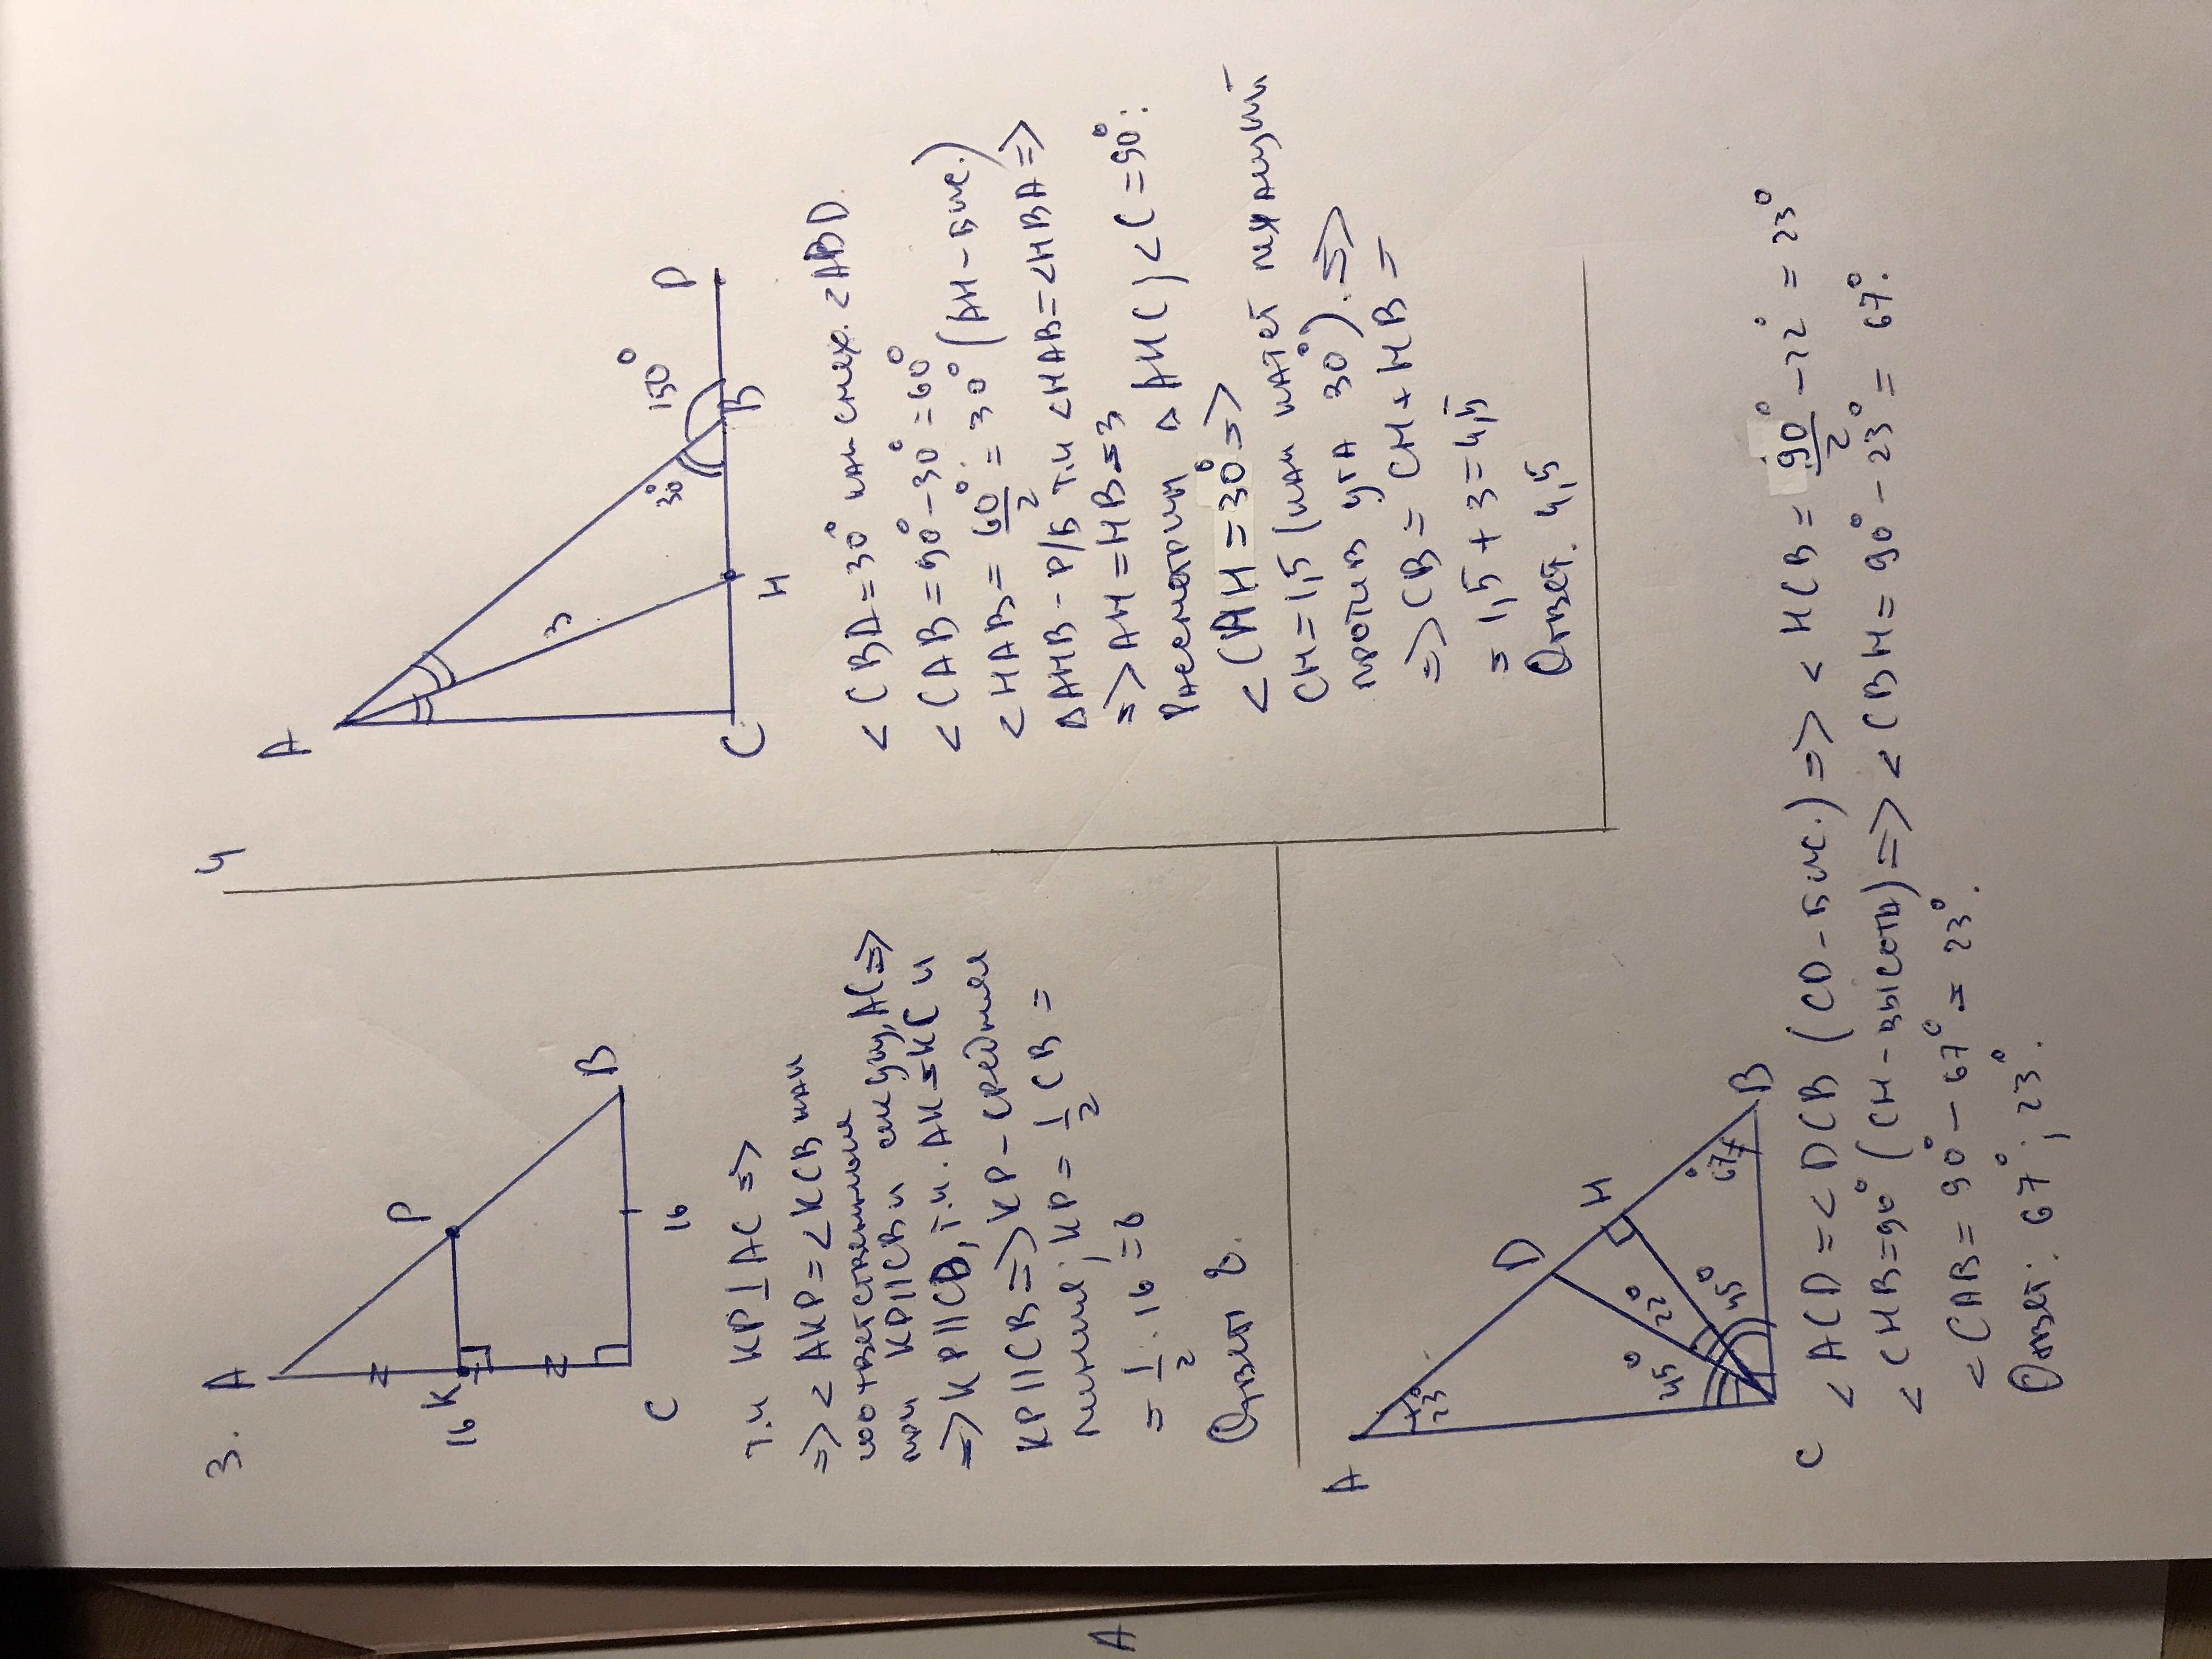 3.
A
P
16 K
C
B
16
т.к KP⊥AC =>
=> <AKP=<KCB как
соответственные
при KP||CB и секущ. AC =>
=> KP||CB, т.к. AK=KC и
KP||CB => KP - средняя
линия; KP = 1/2 CB =
= 1/2 · 16 = 8
Ответ 8.
4
A
3
30°
150°
C
H
B
D
<CBA=30° как смеж. <ABD.
<CAB=90°-30°=60°
<HAB= 60°/2 = 30° (AH-бис.)
∆AHB - р/б т.к <HAB=<HBA =>
=> AH=HB=3
Рассмотрим ∆ AHC) <C=90°:
<CAH=30° =>
CH=1,5 (как катет лежащий
против угла 30°). =>
=> CB = CH + HB =
= 1,5 + 3 = 4,5
Ответ. 4,5
A
23°
D
H
45°
22°
45°
67°
C
B
<ACD = <DCB (CD-бис.) => <HCB = 90°/2 - 22° = 23°
<CHB=90° (CH-высота) => <CBH = 90° - 23° = 67°.
<CAB = 90° - 67° = 23°.
Ответ: 67°; 23°.
A